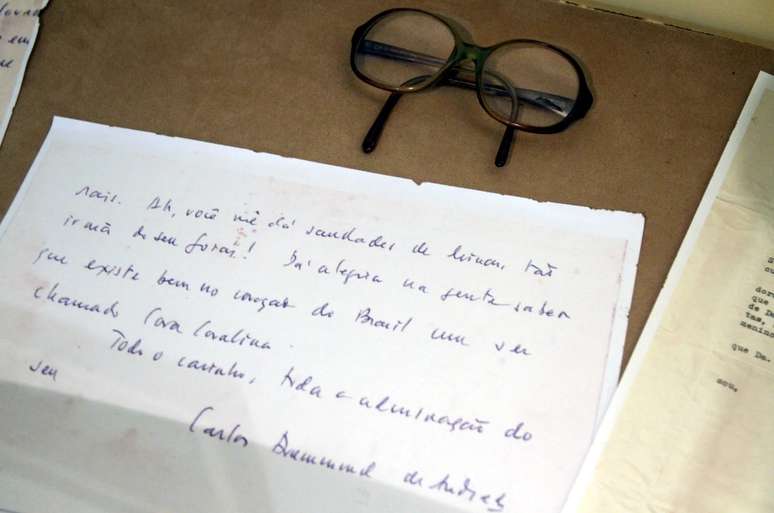 rais. Ah, você me dá saudades de Minas, tão
irmã do seu Goiás! Dá alegria na gente saber
que existe bem no coração do Brasil um ser
chamado Cora Coralina.
Todo o carinho, toda a admiração do
seu
Carlos Drummond de Andrade
em
que
de Da.
tas,
menin
que Da.
sou,